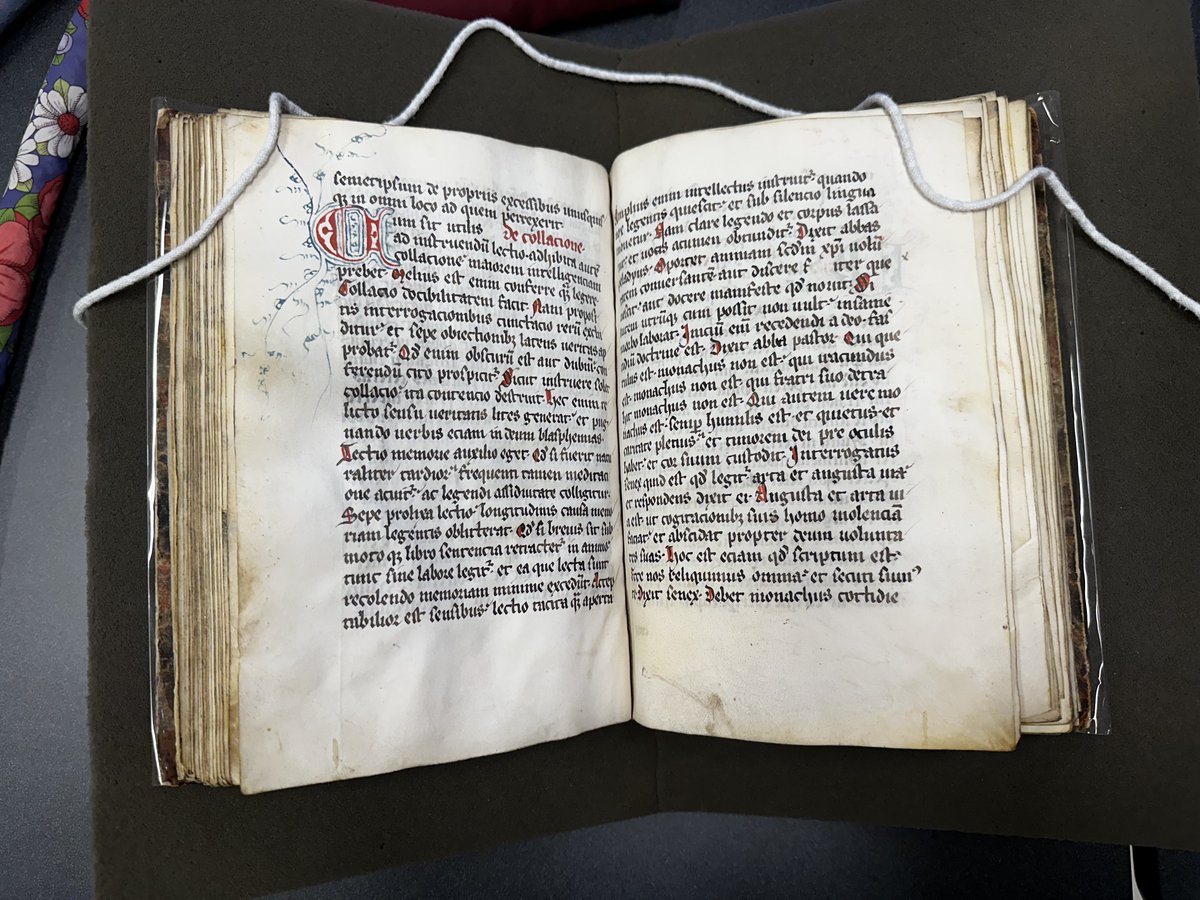 semetipsum de propriis excessibus unusquisq
q in omni loco ad quem perrexerit
Cum sit utilis de collacione
ad instruendū lectio adhibita autē
collacione maiorem intelligenciam
prebet Melius est enim conferre q̄ legere
Collacio docibilitatem facit Nam propositis
tis interrogacionibus cunctacio rerū exclu
ditur et sepe obiectionibz latens veritas ap
probat Qd enim obscurū est aut dubiū con
ferendū cito prospicit Sicut instruere solet
collacio ita contencio destruit Hec enim re
licto sensu veritatis lites generat et pug
nando uerbis eciam in deum blasphemias
Lectio memorie auxilio eget Qd si fuerit natu
raliter tardior frequenti tamen meditaci
one acuit ac legendi assiduitate colligitur
Sepe prolixa lectio longitudinis causa memo
riam legentis obliterat Qd si breuis sit sub
moto q libro sentencia retractet in animo
tunc sine labore legit et ea que lecta sunt
recolendo memoriam minime excedūt Accep
tabilior est sensibus lectio tacita q̄ aperta
Amplius enim intellectus instruit quando
vox legentis quiescat et sub silencio lingua
mouetur Nam clare legendo et corpus lassa
tur et uocis acumen obtundit Dixit abbas
Oportet animam scdm xpi uolū
tatem conuersantē aut discere iter que
nescit aut docere manifeste qd nouit Si
autem utrūq cum possit non uult insanie
morbo laborat Iniciū eni recedendi a deo fas
tidiū doctrine est Dixit abba pastor Qui que
rulus est monachus non est qui iracundus
est monachus non est qui fratri suo detra
hit monachus non est Qui autem uere mo
nachus est semp humilis est et quietus et
caritate plenus et timorem dei pre oculis
habet et cor suum custodit Interrogatus
senex quid est qd legit arta et augusta uia
et respondens dixit ei Augusta et arta ui
a est ut cogitacionibz suis homo uiolenciā
faciat et abscidat propter deum uolunta
tes suas Hoc est eciam qd scriptum est
Ecce nos reliquimus omnia et secuti sum
te Dixit senex Debet monachus cottidie